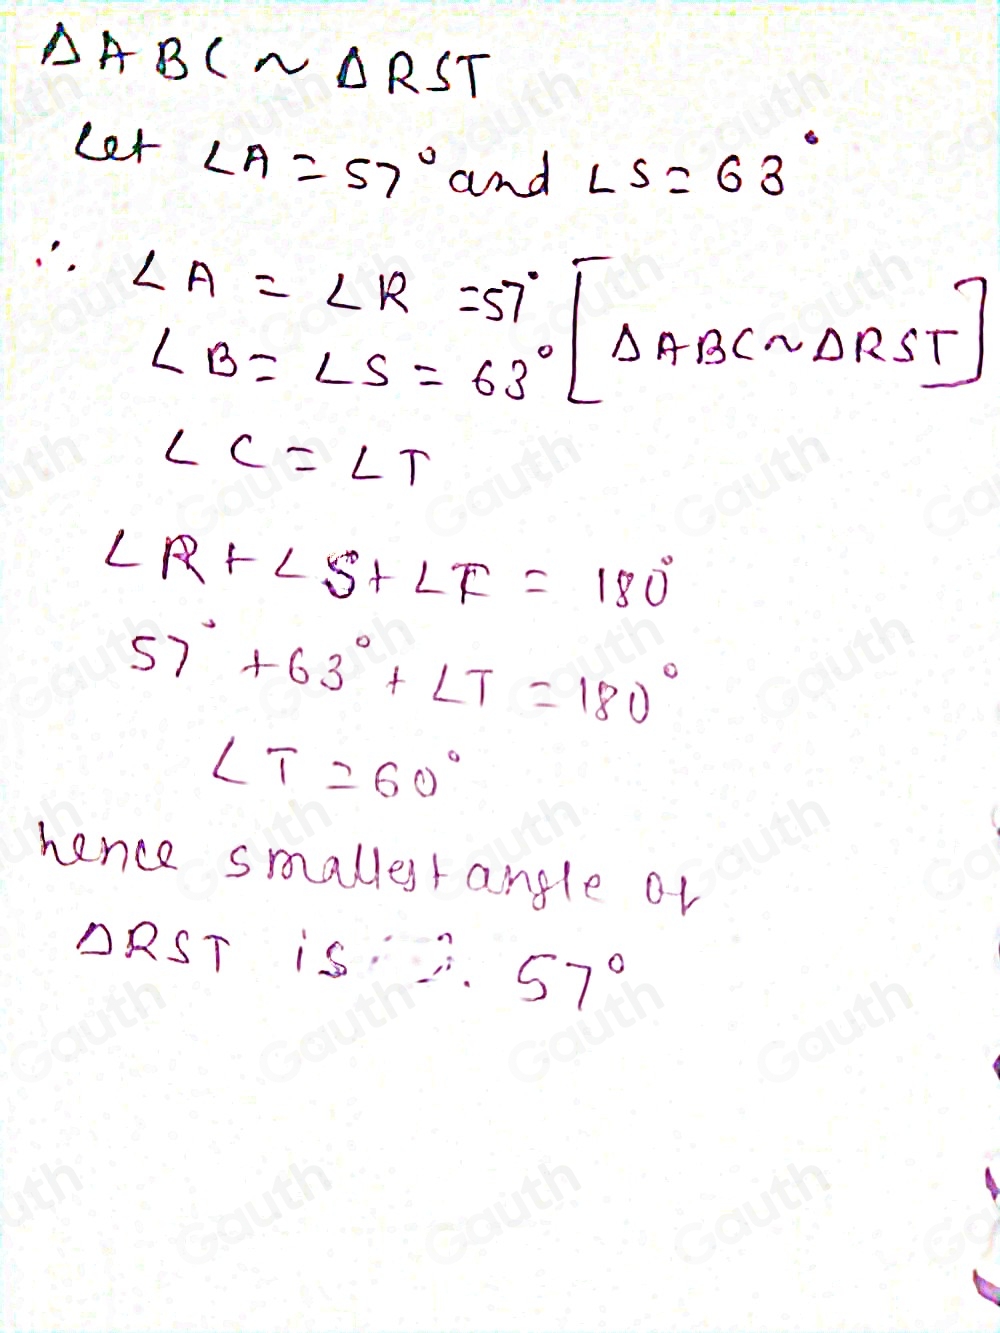 ΔABC ~ ΔRST
Let ∠A = 57° and ∠S = 63°
∴ ∠A = ∠R = 57° [ΔABC ~ ΔRST]
∠B = ∠S = 63°
∠C = ∠T
∠R + ∠S + ∠T = 180°
57° + 63° + ∠T = 180°
∠T = 60°
hence smallest angle of
ΔRST is 57°